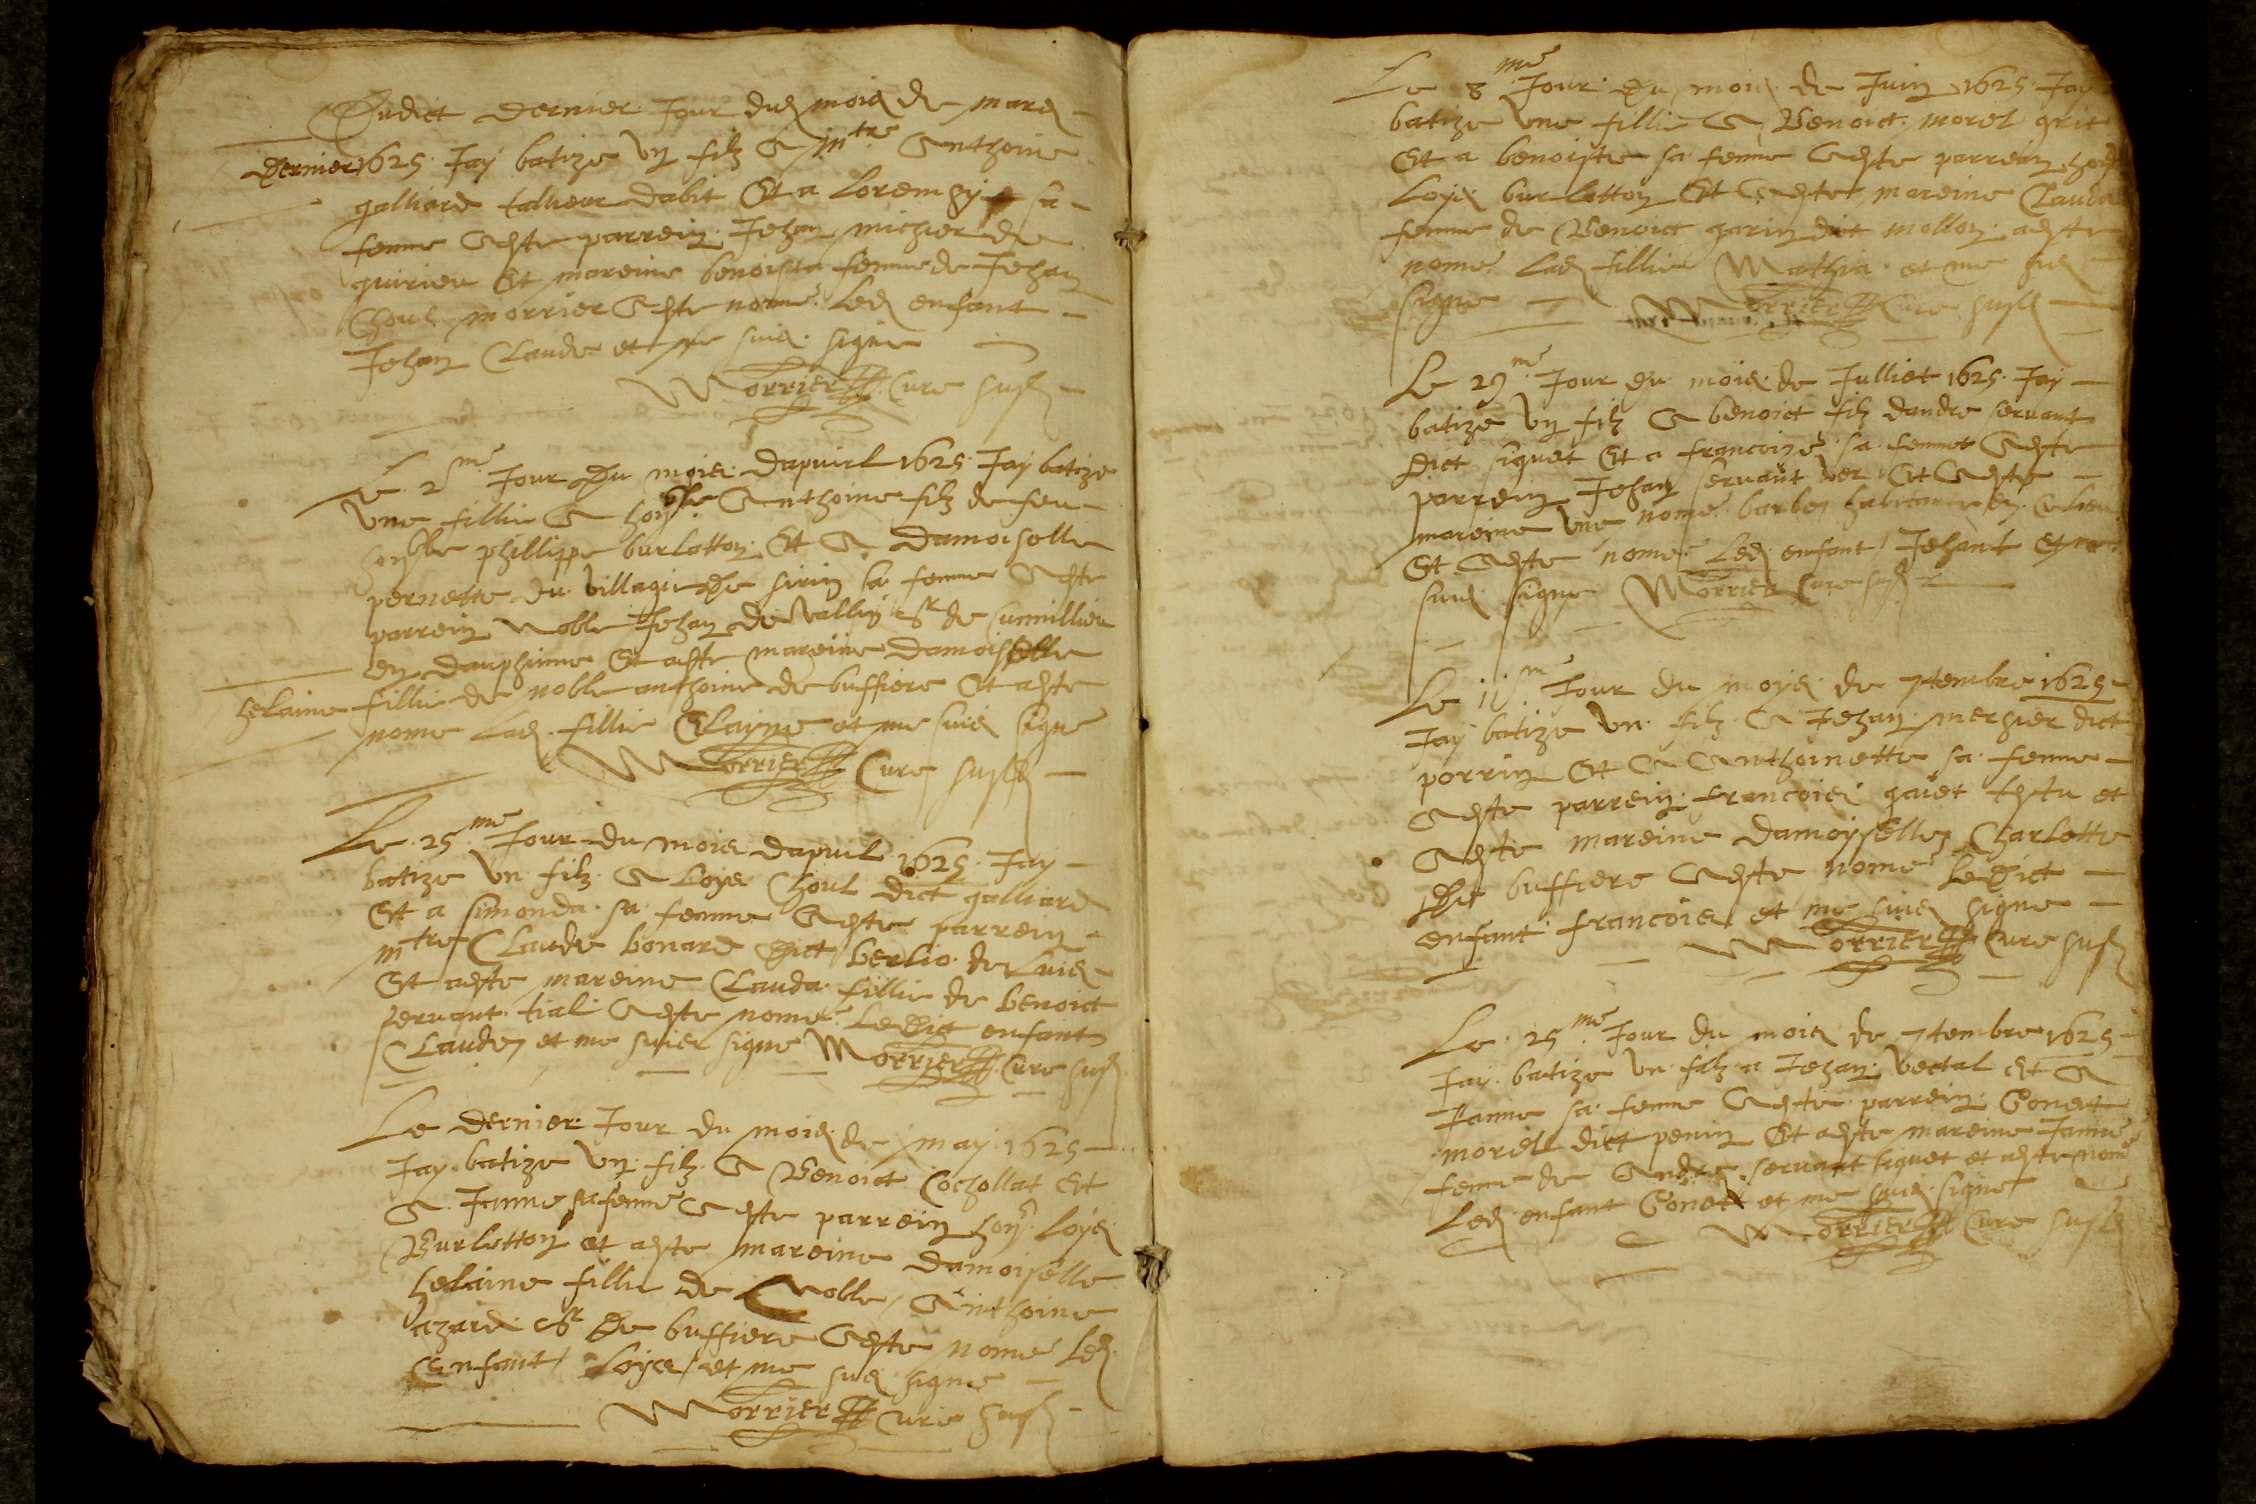 Dudict dernier Jour dud mois de mars
dernier 1625 Jay batize ung filz a mtre Anthoine
galliard tallieur dabit Et a Loremzy sa
femme a este parrein Jehan michier de
quirieu Et mareine benoista femme de Jehan
Choul morrier a este nome Led enfant
Jehan Claude et me suis signe
Morrier Cure susd
Le 2me Jour Du mois dapuril 1625 Jay batize
Une fillie a honble Anthoine filz de feu
honble phillippe burlatton Et a Damoiselle
pernette du Villagie De sirin sa femme a este
parrein Noble Jehan de Vallin Sr de
En dauphinne Et a este mareine Damoiselle
helaine fillie de noble anthoine de buffiere Et a este
nome Lad fillie Elayne et me suis signe
Morrier Cure susd
Le 25me Jour du mois dapuril 1625 Jay
batize Un filz a Loys Choul dict galliard
Et a simonda sa femme a este parrein
mtre Claude bonard dict berlio de Luis
Et a este mareine Clauda fillie de benoict
seruant tial a este nome Ledict enfant
Claude et me suis signe Morrier Cure susd
Le dernier Jour du mois de may 1625
Jay batize ung filz a Benoict Cochollat Et
a Janne sa femme a este parrein hon Loys
Burlatton et a este mareine damoiselle
helaine fillie de Noble Anthoine
azard Sr De buffiere a este nome Led
Enfant Loys et me suis signe
Morrier Cure susd
Le 8me Jour Du mois de Juin 1625 Jay
batize Une fillie a Benoict morel
Et a benoiste sa femme a este parrein
Loys burlatton Et a este mareine Clauda
femme de Benoict garin dict mollon a este
nome Lad fillie Mathia et me suis
signe Morrier Cure susd
Le 29me Jour du mois de Julliet 1625 Jay
batize ung filz a benoict filz dandre seruant
Dict siguet Et a francoize sa femme a este
parrein Jehan seruant Et a este
mareine Une nome barbe habitante en
Et a este nome Led enfant Jehant et me
suis signe Morrier Cure susd
Le Jour du moys de 7tembre 1625
Jay batize Un filz a Jehan merhier dict
porrin Et a Anthoinette sa femme
a este parrein francois gauet et
a este mareine damoyselle Charlotte
De buffiere a este nome Ledict
enfant francois et me suis signe
Morrier Cure susd
Le 25me Jour du mois de 7tembre 1625
Jay batize Un filz a Jehan Vectal Et a
Janne sa femme a este parrein Gonet
morel dict penin Et a este mareine Janne
femme de Andre seruant siguet et a este nome
Led enfant Gonet et me suis signe
Morrier Cure susd